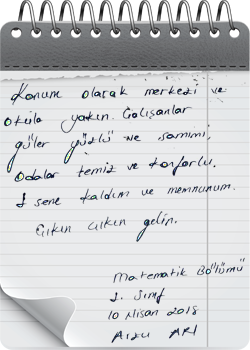 Konum olarak merkezi ve
okula yakın. Çalışanlar
güler yüzlü ve samimi,
Odalar temiz ve konforlu.
1 sene kaldım ve memnunum.
Çıkın çıkın gelin.
Matematik Bölümü
2. Sınıf
10 Nisan 2018
Arzu ARI